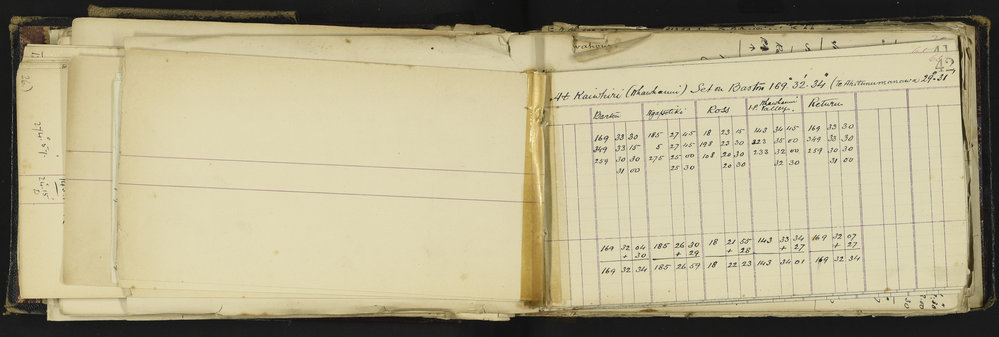 42
At Kaiwhiri (Mawhanui) Set on Barton 169° 32' 34" (To Ahitunumanawa 29·31
Barton Ross Valley Return
169 33 30 185 27 45 18 23 15 143 34 45 169 33 30
349 33 15 5 27 45 198 23 30 323 35 00 349 33 30
259 30 30 275 25 00 108 20 30 233 32 00 259 30 30
31 00 25 30 20 30 32 30 31 00
169 32 04 185 26 30 18 21 55 143 33 34 169 32 07
+ 30 + 29 + 28 + 27 + 27
169 32 34 185 26 59 18 22 23 143 34 01 169 32 34